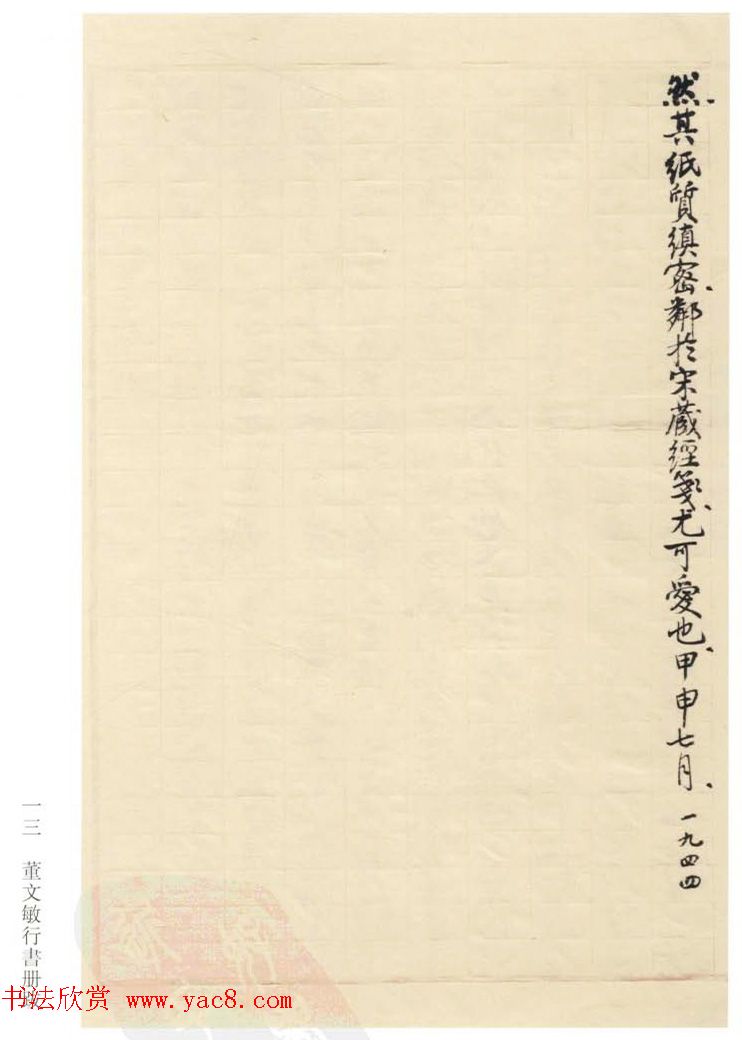 然其紙質縝密鄰於宋藏經箋尤可愛也甲申七月 一九四四
一三 董文敏行書冊跋
书法欣赏 www.yac8.com